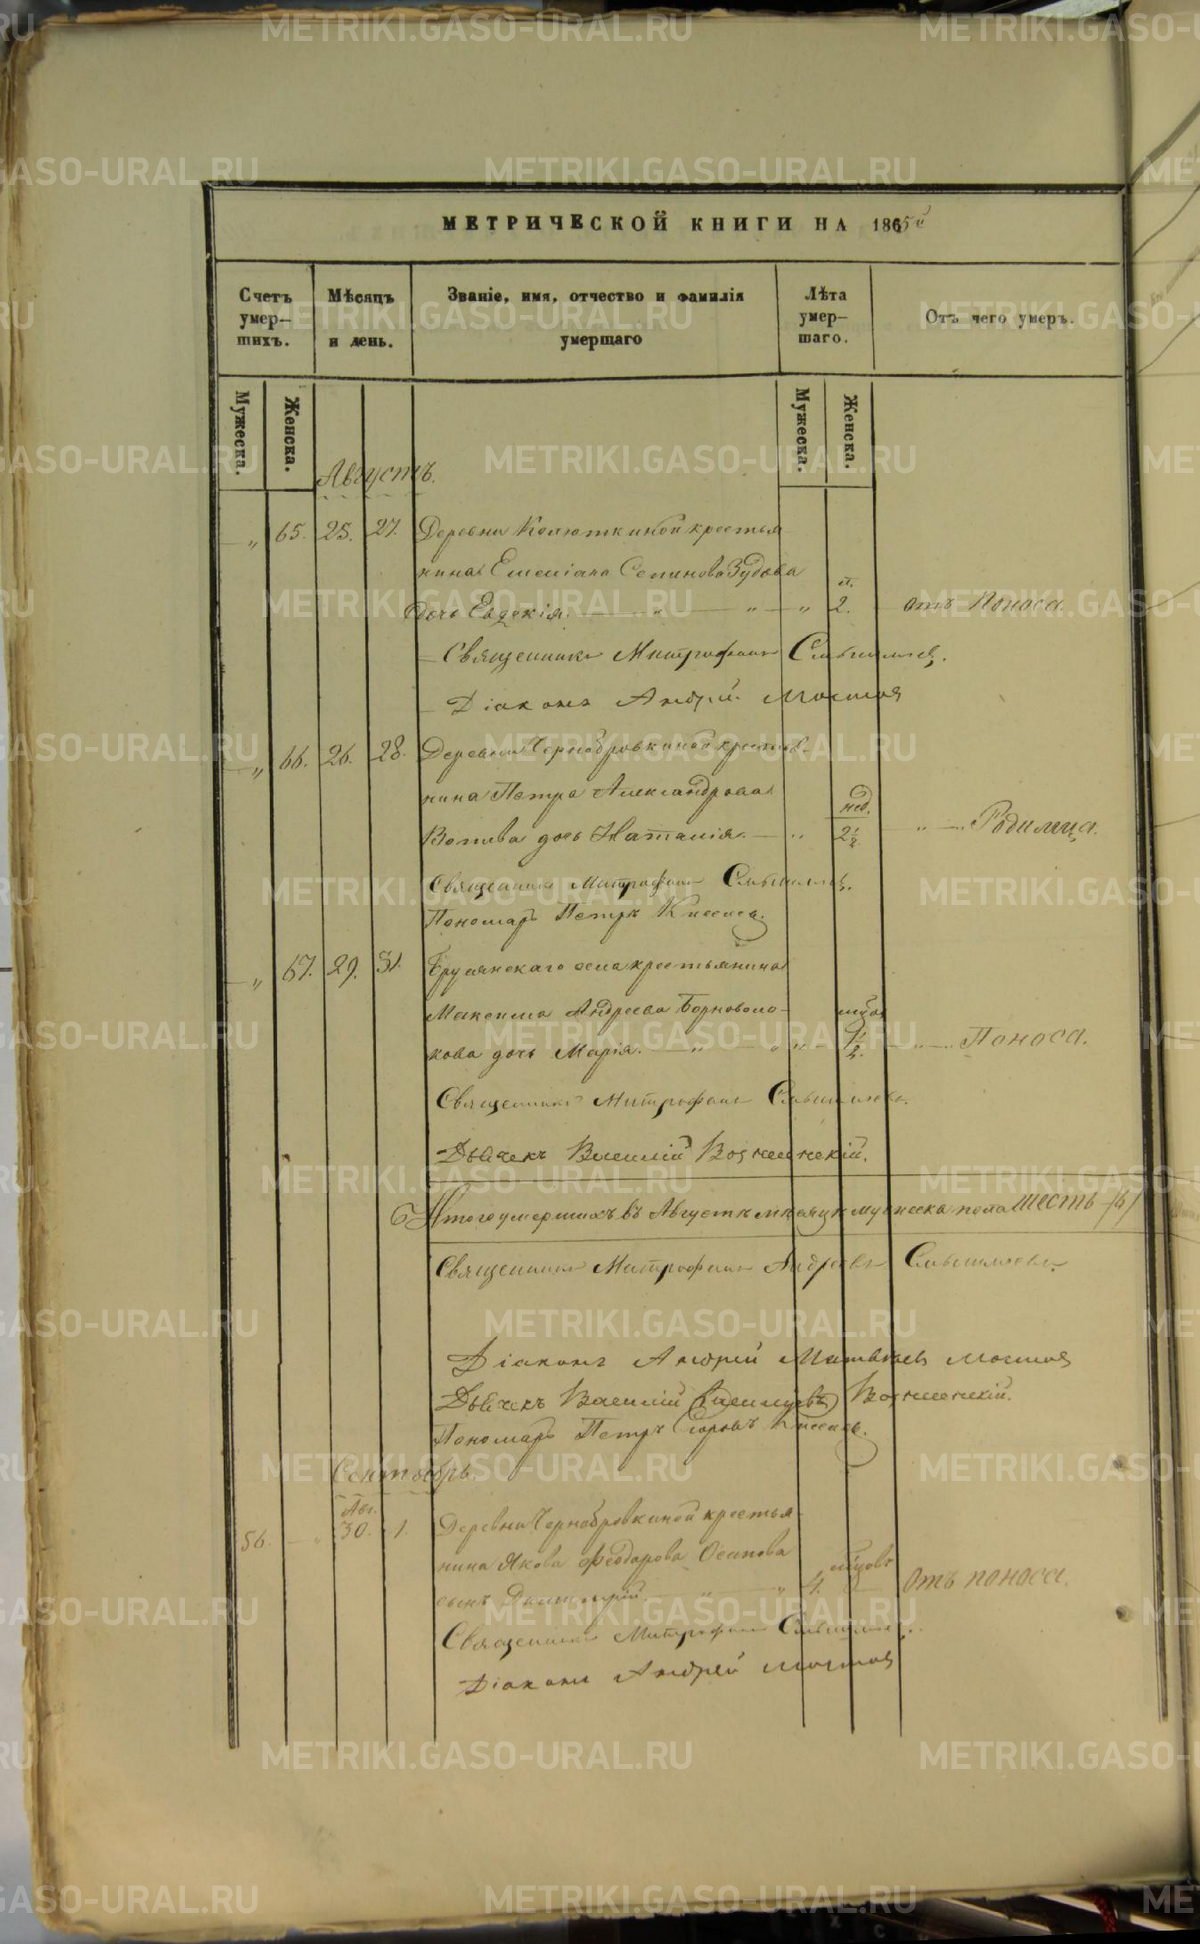 МЕТРИЧЕСКОЙ КНИГИ НА 1865й
Счетъ умер-шихъ.
Мѣсяцъ и день.
Званіе, имя, отчество и фамилія умершаго
Лѣта умер-шаго.
Отъ чего умеръ.
Мужеска.
Женска.
Мужеска.
Женска.
Августъ.
„ 65. 25. 27. Деревни Колюткиной крестья
нина Емеліана Зудова
дочь Евдокія. „ „ „ л. 2. отъ Поноса.
Священникъ Митрофанъ Смышляевъ.
Діаконъ Андрей
„ 66. 26. 28. Деревни Чернобровкиной крестья-
нина Петра Александрова
дочь Наталія. „ нед. 2½ „ Родимца.
Священникъ Митрофанъ Смышляевъ.
Пономарь Петръ
„ 67. 29. 31. Бруслянскаго села крестьянина
Максима Андреева Борноволо-
кова дочь Марія. „ „ „ ½. „ Поноса.
Священникъ Митрофанъ Смышляевъ.
Дьячекъ Василій Вознесенскій.
Итого умершихъ въ Августѣ мѣсяцѣ мужеска пола шесть /6/
Священникъ Митрофанъ Андреевъ Смышляевъ.
Діаконъ Андрей Матвѣевъ
Дьячекъ Василій Вознесенскій.
Пономарь Петръ Егоровъ
Сентябрь.
56. „ Авг. 30. 1. Деревни Чернобровкиной крестья-
нина Якова Феодорова Осипова
сынъ Димитрій. „ „ 4. мѣсяцовъ отъ поноса.
Священникъ Митрофанъ Смышляевъ.
Діаконъ Андрей
METRIKI.GASO-URAL.RU